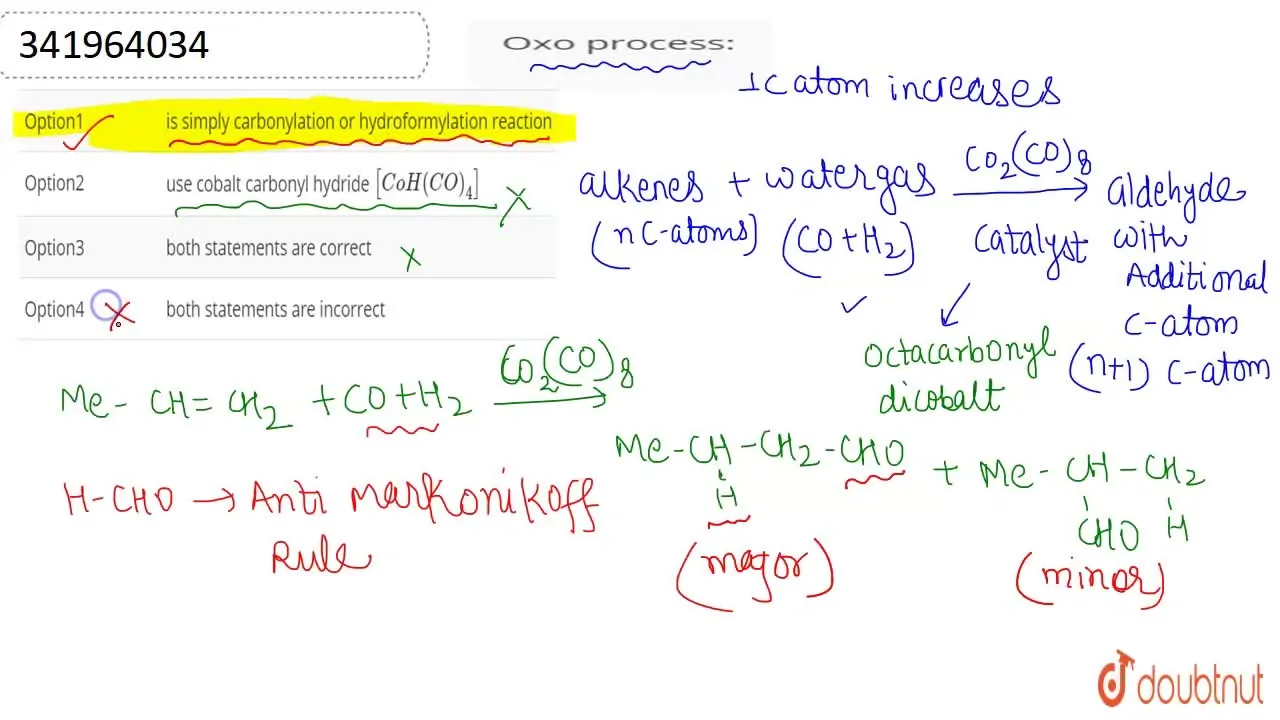 341964034
Oxo process:
1C atom increases
Option1 is simply carbonylation or hydroformylation reaction
Option2 use cobalt carbonyl hydride [CoH(CO)₄]
Option3 both statements are correct
Option4 both statements are incorrect
alkenes + watergas Co₂(CO)₈ aldehyde
(n C-atoms) (CO+H₂) Catalyst with
Additional
C-atom
(n+1) C-atom
Octacarbonyl
dicobalt
Me - CH = CH₂ + CO + H₂ Co₂(CO)₈
Me - CH - CH₂ - CHO + Me - CH - CH₂
H CHO H
(major) (minor)
H-CHO → Anti Markonikoff
Rule
doubtnut